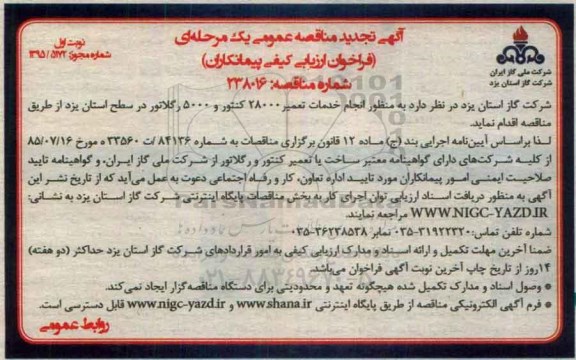 آگهی تجدید مناقصه عمومی یک مرحله‌ای
(فراخوان ارزیابی کیفی پیمانکاران)
شماره مناقصه: ۲۳۸۰۱۶
نوبت اول
شماره مجوز: ۵۱۷۲ / ۱۳۹۵
شرکت ملی گاز ایران
شرکت گاز استان یزد
شرکت گاز استان یزد در نظر دارد به منظور انجام خدمات تعمیر ۲۸۰۰۰ کنتور و ۵۰۰۰ رگلاتور در سطح استان یزد از طریق
مناقصه اقدام نماید.
لذا براساس آیین‌نامه اجرایی بند (ج) ماده ۱۲ قانون برگزاری مناقصات به شماره ۸۴۱۳۶ / ت ۳۳۵۶۰ ه مورخ ۸۵/۰۷/۱۶
از کلیه شرکت‌های دارای گواهینامه معتبر ساخت یا تعمیر کنتور و رگلاتور از شرکت ملی گاز ایران، و گواهینامه تایید
صلاحیت ایمنی امور پیمانکاران مورد تایید اداره تعاون، کار و رفاه اجتماعی دعوت به عمل می‌آید که از تاریخ نشر این
آگهی به منظور دریافت اسناد ارزیابی توان اجرای کار به بخش مناقصات پایگاه اینترنتی شرکت گاز استان یزد به نشانی:
WWW.NIGC-YAZD.IR مراجعه نمایند.
شماره تلفن تماس: ۳۱۹۲۳۲۰-۰۳۵ نمابر ۳۶۲۳۸۵۳۸-۰۳۵
ضمنا آخرین مهلت تکمیل و ارائه اسناد و مدارک ارزیابی کیفی به امور قراردادهای شرکت گاز استان یزد حداکثر (دو هفته)
۱۴ روز از تاریخ چاپ آخرین نوبت آگهی فراخوان می‌باشد.
● وصول اسناد و مدارک تکمیل شده هیچگونه تعهد و محدودیتی برای دستگاه مناقصه‌گزار ایجاد نمی‌کند.
● فرم آگهی الکترونیکی مناقصه از طریق پایگاه اینترنتی www.shana.ir و www.nigc-yazd.ir قابل دسترسی است.
روابط عمومی